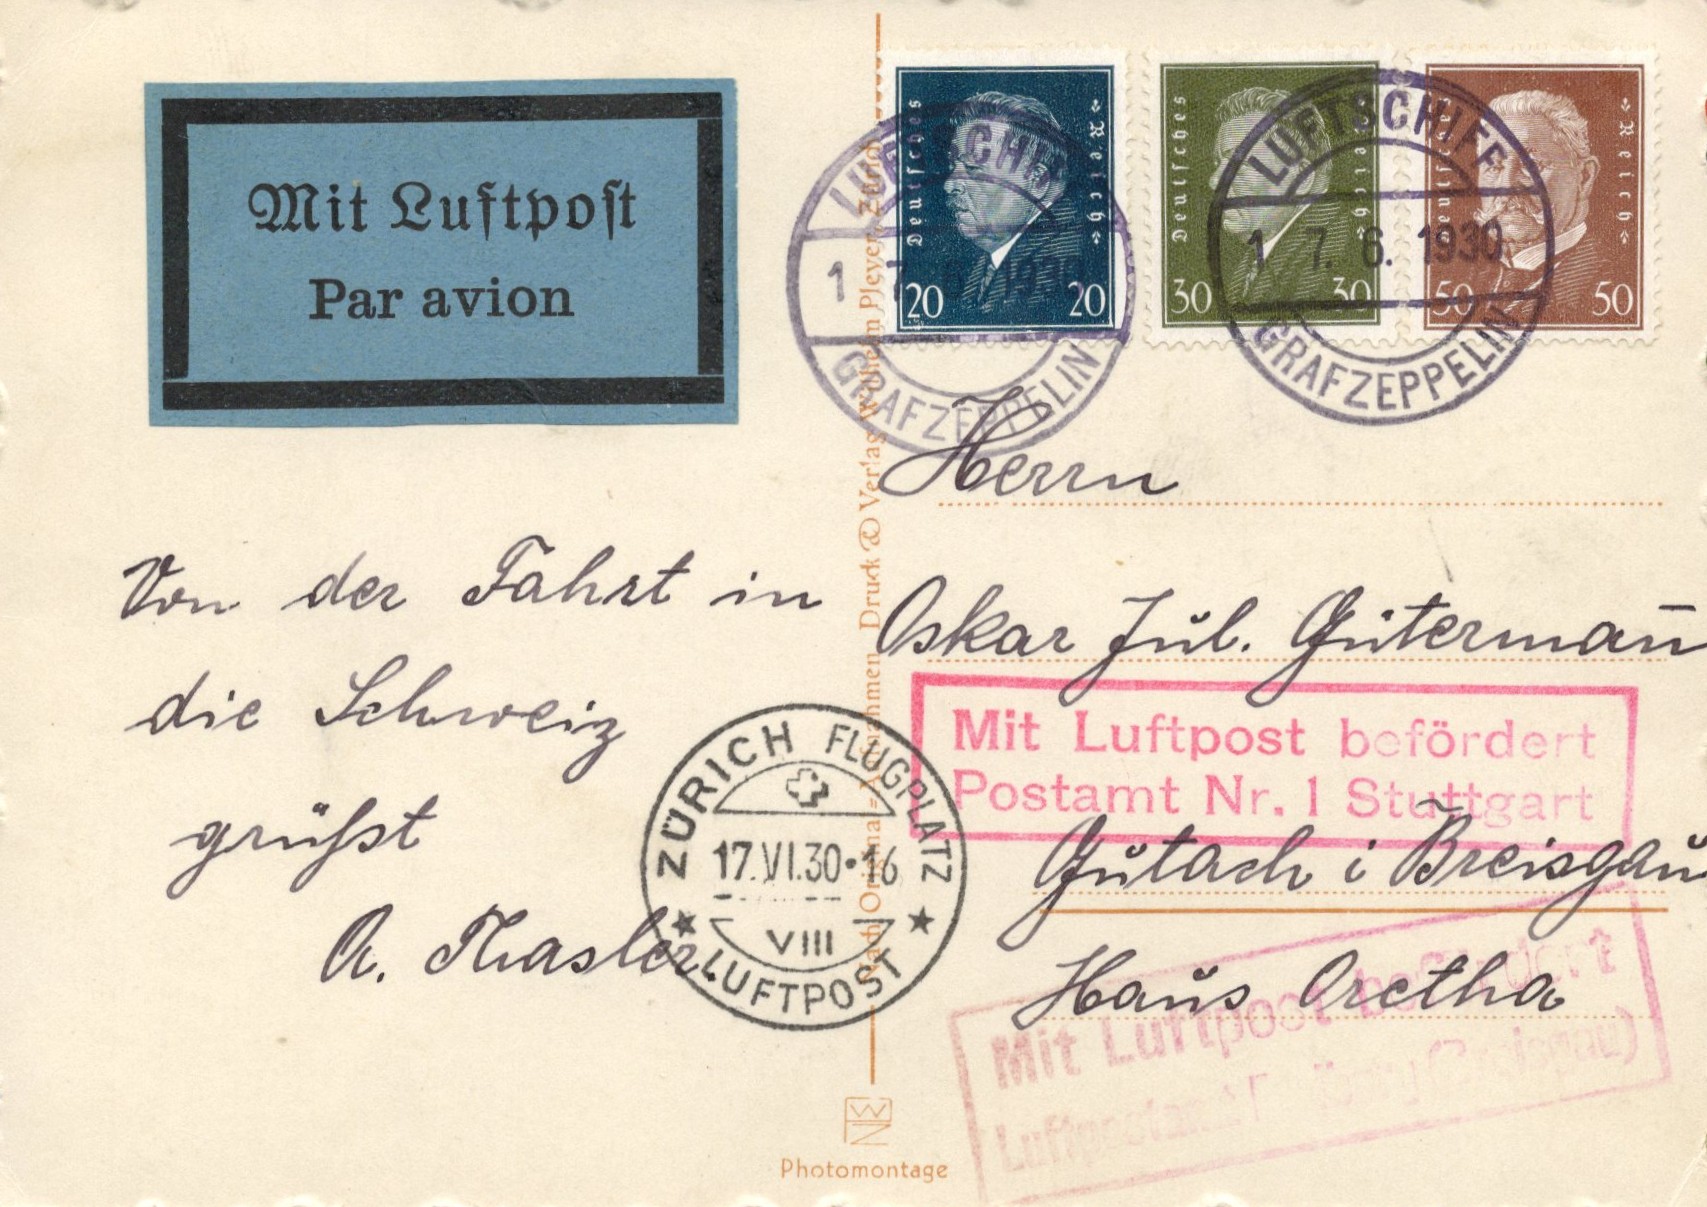 Mit Luftpost
Par avion
Deutsches Reich
20 20
Deutsches Reich
30 30
Deutsches Reich
50 50
LUFTSCHIFF
17. 6. 1930
GRAF ZEPPELIN
LUFTSCHIFF
17. 6. 1930
GRAF ZEPPELIN
Von der Fahrt in
die Schweiz
grüßt
A.
Herrn
Oskar Jul. Gütermañ
Gutach i Breisgau
Haus Oretha
Mit Luftpost befördert
Postamt Nr. 1 Stuttgart
ZÜRICH FLUGPLATZ
17.VI.30·16
VIII
LUFTPOST
Mit Luftpost befördert
(Breisgau)
Druck & Verlag Wilhelm Pleyer, Zürich
Photomontage